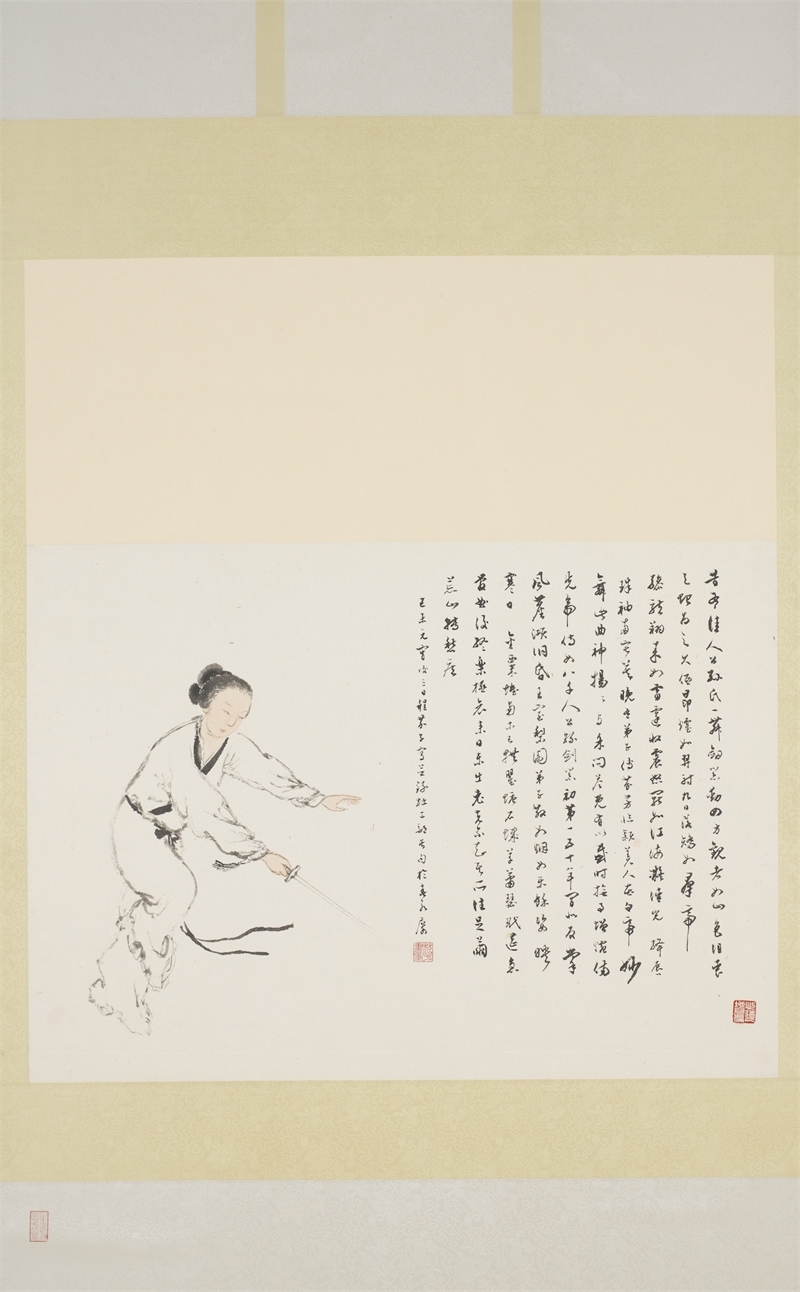 昔有佳人公孫氏一舞劍器動四方觀者如山色沮喪
天地為之久低昂㸌如羿射九日落矯如羣帝
驂龍翔來如雷霆收震怒罷如江海凝清光絳唇
珠袖兩寂莫晚有弟子傳芬芳臨潁美人在白帝妙
舞此曲神揚〻與余問答既有以感時撫事增惋傷
先帝侍女八千人公孫劍器初第一五十年間似反掌
風塵澒洞昏王室梨園弟子散如烟女樂餘姿映
寒日金粟堆南木已拱瞿塘石城草蕭瑟玳筵急
管曲復終樂極哀來月東出老夫不知其所往足繭
荒山轉愁疾
元宵後三日程芥子寫并錄杜工部長句於